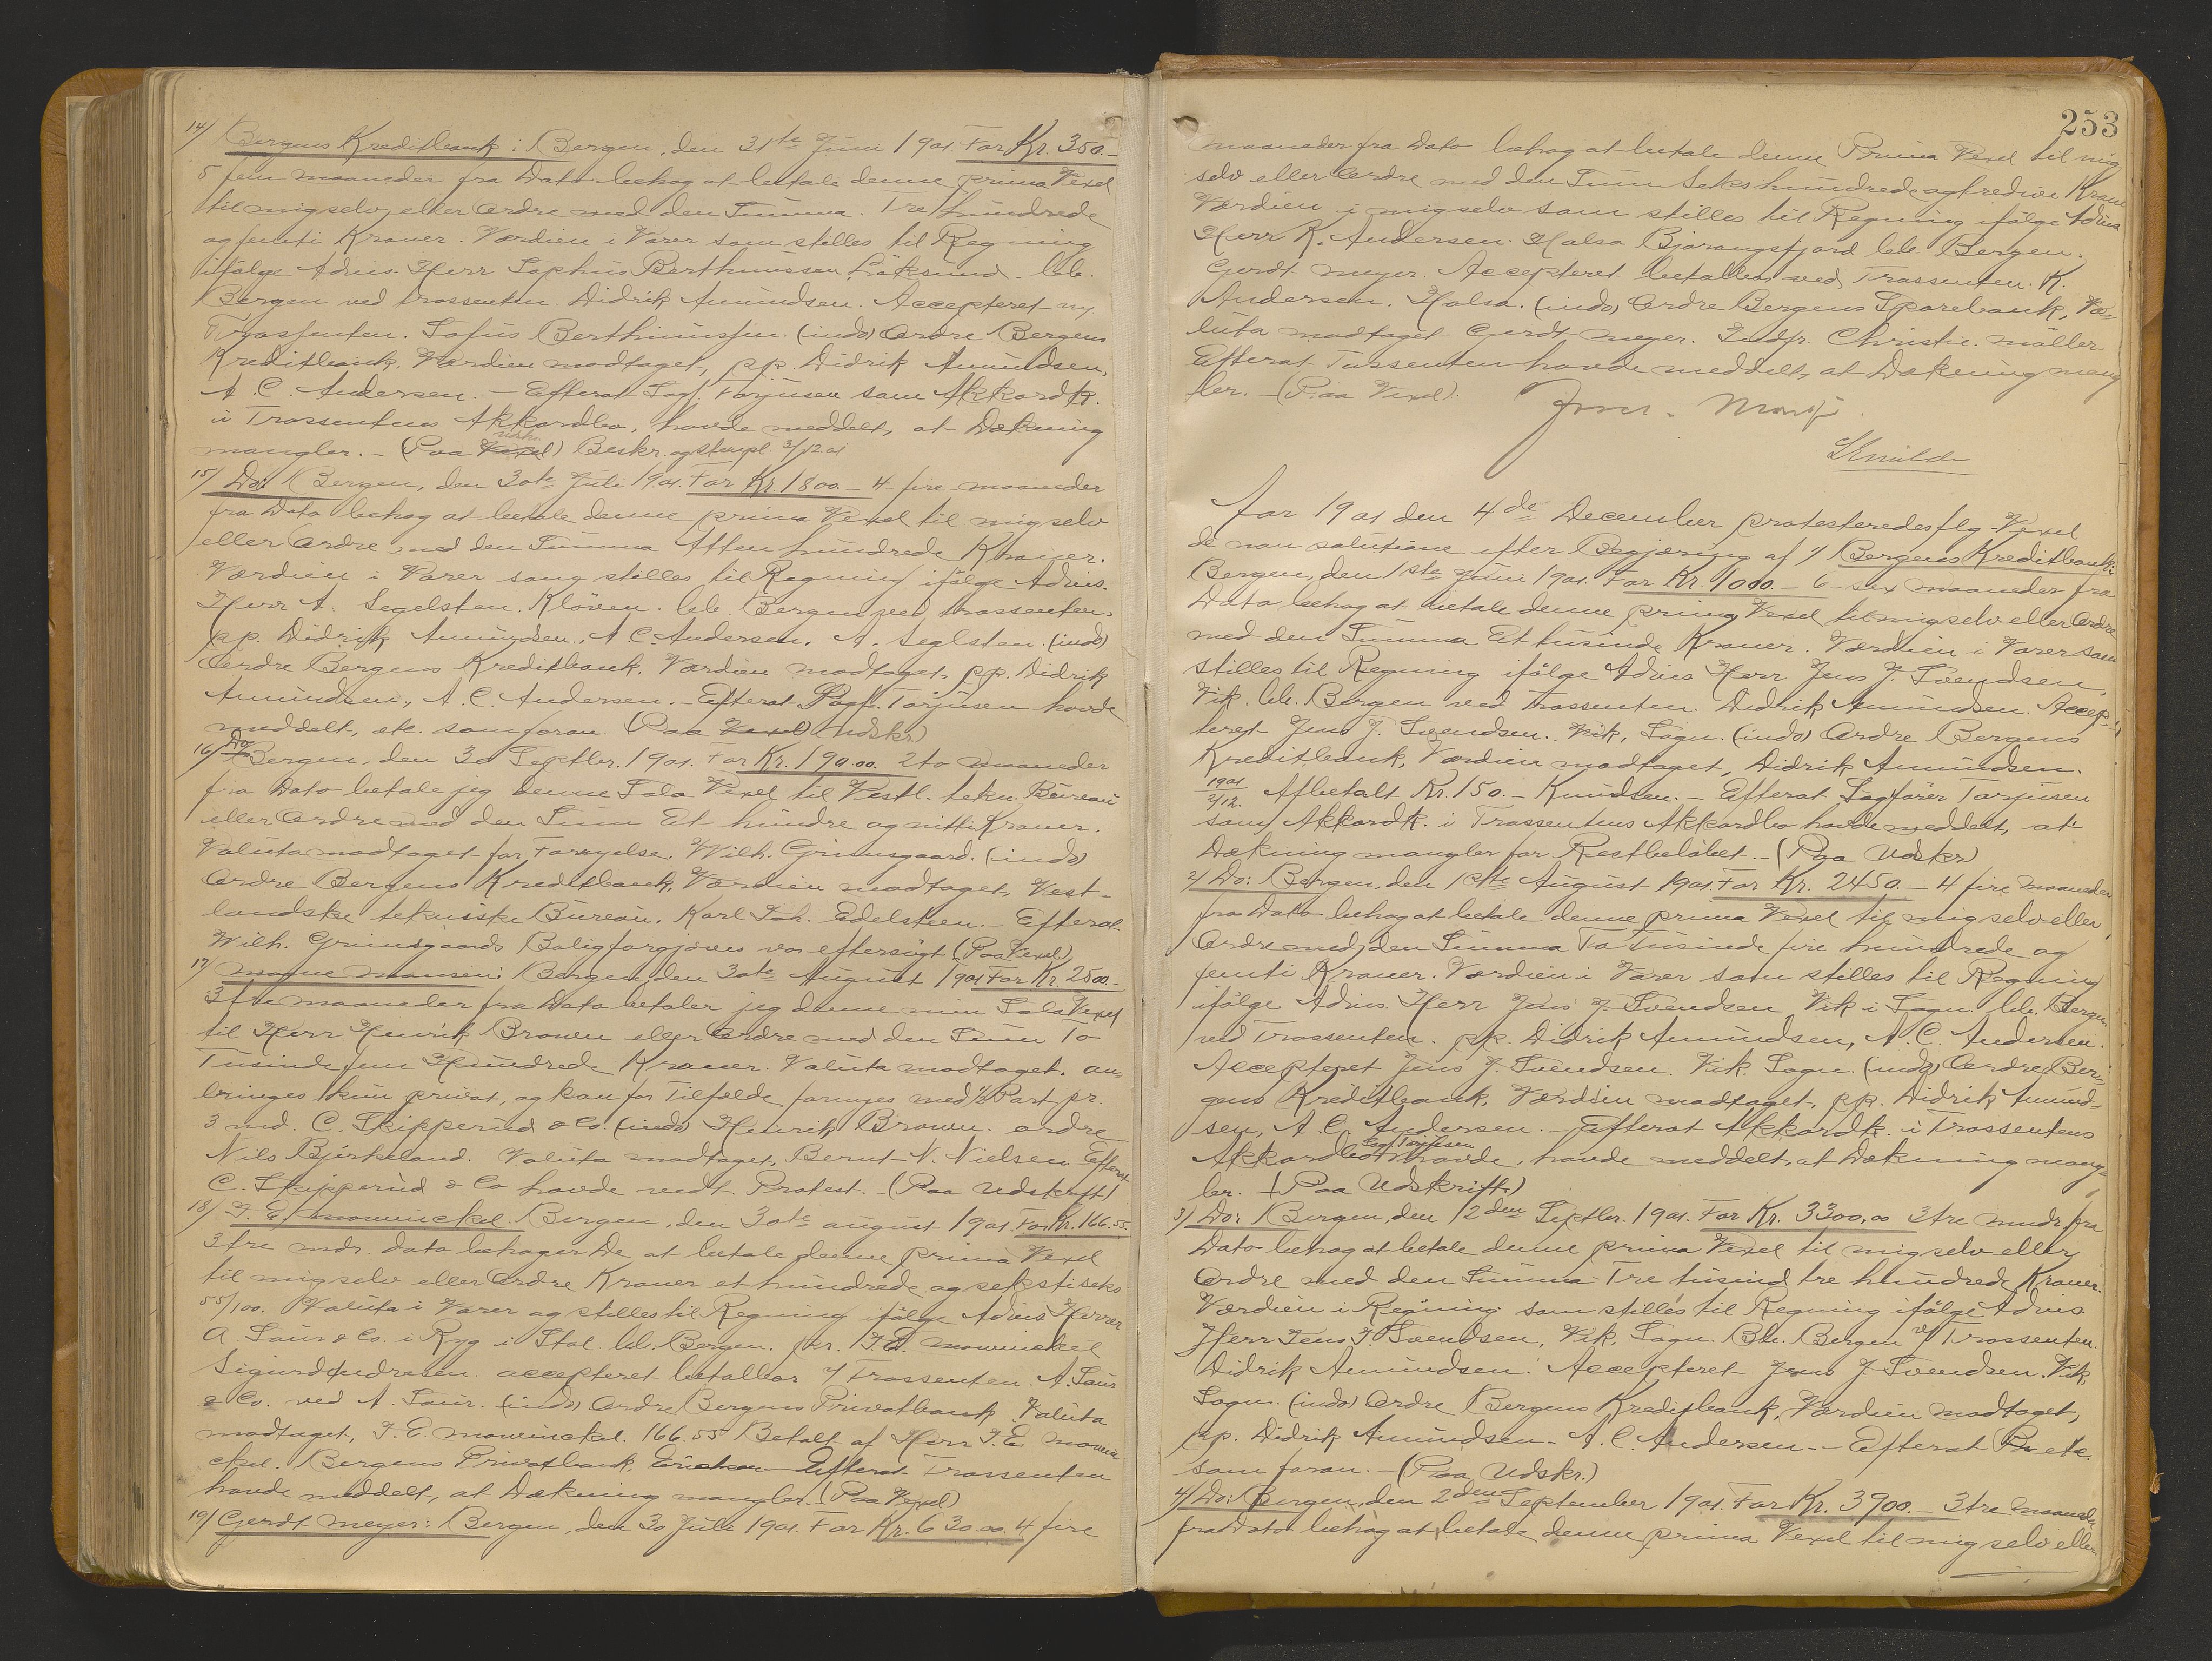 14/ Bergens Kreditbank: Bergen, den 31te Juni 1901. For Kr. 350.-
5 fem maaneder fra Dato behag at betale denne prima Vexel
til mig selv eller Ordre med den Summa. Tre hundrede
og femti Kroner. Værdien i Varer som stilles til Regning
ifølge Advis. Herr Sophus Berthinussen bb.
Bergen ved Trassenten. Didrik Amundsen. Accepteret
Trassenten. Sofus Berthinussen. (indo) Ordre Bergens
Kreditbank, Værdien modtaget, pp. Didrik Amundsen,
A. C. Andersen. - Efterat Sagf. Torjusen som Akkordk.
i Trassentens Akkordbo, havde meddelt, at Dækning
mangler. - (Paa Vexel) Beskr. og stempl. 3/12 01
15/ Do: Bergen, den 30te Juli 1901. For Kr 1800.- 4 fire maaneder
fra Dato behag at betale denne prima Vexel til mig selv
eller Ordre med den Summa Atten hundrede Kroner.
Værdien i Varer som stilles til Regning ifølge Advis.
Herr A. Segelsten. Kløven. bb. Bergen ved Trassenten.
pp. Didrik Amundsen, A C. Andersen. A. Seglsten. (indo)
Ordre Bergens Kreditbank, Værdien modtaget, pp. Didrik
Amundsen, A. C. Andersen. - Efterat Sagf. Torjusen havde
meddelt, etc. som foran. (Paa Vexel Udskr)
16/ Do Bergen, den 30 Septbr. 1901. For Kr. 190.00. 2 to maaneder
fra Dato betale jeg denne Sola Vexel til Vestl. tekn. Bureau
eller Ordre med den Sum Et hundre og nitti Kroner.
Valuta modtaget for Fornyelse. Wilh. Grimsgaard. (indo)
Ordre Bergens Kreditbank, Værdien modtaget, Vest-
landske tekniske Bureau. Karl Joh. Edelsteen. - Efterat
Wilh. Grimsgaards Bolig forgjæves var eftersøgt (Paa Vexel)
17/ Mogne Monsen: Bergen, den 30te August 1901 For Kr. 2500.-
3 tre maaneder fra Dato betaler jeg denne min Sola Vexel
til Herr Henrik Brown eller Ordre med den Sum To
Tusinde fem Hundrede Kroner. Valuta modtaget. an-
bringes kun privat, og kan for Tilfælde fornyes med ½ Part pr.
3 md. C. Skipperud & Co. (indo) Henrik Brown. ordre
Nils Bjørkeland. Valuta modtaget, Bernt N. Nielsen. Efterat
C. Skipperud & Co havde vedt. Protest. - (Paa Udskrift)
18/ J. E. Mowinckel. Bergen, den 30te august 1901. For Kr. 166.55
3 tre mdr. dato behager De at betale denne prima Vexel
til mig selv eller Ordre Kroner et hundrede og seksti seks
55/100. Valuta i Varer og stilles til Regning ifølge Advis Herrer
A. Saur & Co. i Ryg i Stol. bb. Bergen. pr. J. E. Mowinckel
Sigurd Andresen. accepteret betalbar v/ Trassenten. A. Saur
& Co. ved A. Saur. (indo) Ordre Bergens Privatbank Valuta
modtaget, J. E. Mowinckel. 166.55 Betalt af Herr J. E. Mowin
ckel. Bergens Privatbank, Erichsen Efterat Trassenten
havde meddelt, at Dækning mangler. (Paa Vexel)
19/ Gerdt Meyer: Bergen, den 30 Juli 1901. For Kr. 630.00. 4 fire
253
maaneder fra Dato behag at betale denne Prima Vexel til mig
selv eller Ordre med den Sum Seks hundrede og tredive Kroner
Værdien i mig selv som stilles til Regning ifølge Advis
Herr K. Andersen. Halsa Bjærangsfjord bb. Bergen.
Gerdt Meyer. Accepteret betalbar ved Trassenten. K.
Andersen. Halsa. (indo) Ordre Bergens Sparebank, Va-
luta modtaget Gerdt Meyer. Indfr. Christie. Møller
Efterat Trassenten havde meddelt, at Dækning mang
ler. - (Paa Vexel).
Aar 1901 den 4de December protesteredes flg. Vexel
de non solutione efter Begjæring af 1/ Bergens Kreditbank:
Bergen, den 1ste Juni 1901. For Kr. 1000.- 6 sex maaneder fra
Dato behag at betale denne prima Vexel til mig selv eller Ordre
med den Summa Et tusinde Kroner. Værdien i Varer som
stilles til Regning ifølge Advis Herr Jens J. Svendsen,
Vik. bb. Bergen ved Trassenten. Didrik Amundsen. Accep-
teret Jens J. Svendsen. Vik, Sogn. (indo) Ordre Bergens
Kreditbank, Værdien modtaget, Didrik Amundsen.
1901 2/12. Afbetalt Kr. 150.- Knudsen. - Efterat Sagfører Torjusen
som Akkordk. i Trassentens Akkordbo havde meddelt, at
Dækning mangler for Restbeløbet. - (Paa Udskr)
2/ Do: Bergen, den 1ste August 1901. For Kr. 2450.- 4 fire maaneder
fra Dato behag at betale denne prima Vexel til mig selv eller
Ordre med den Summa To Tusinde fire hundrede og
femti Kroner. Værdien i Varer som stilles til Regning
ifølge Advis. Herr Jens J. Svendsen Vik i Sogn. bb. Bergen
ved Trassenten. pp. Didrik Amundsen, A. C. Andersen.
Accepteret Jens J. Svendsen. Vik. Sogn. (indo) Ordre Ber-
gens Kreditbank, Værdien modtaget, pp. Didrik Amund-
sen, A. C. Andersen. - Efterat Akkordk. i Trassentens
Akkordbo Sagf. Torjusen havde, havde meddelt, at Dækning mang-
ler. (Paa Udskrift.)
3/ Do: Bergen, den 12den Septbr. 1901. For Kr. 3300,00 3 tre mndr. fra
Dato behag at betale denne prima Vexel til mig selv eller
Ordre med den Summa Tre tusind tre hundrede Kroner.
Værdien i Regning som stilles til Regning ifølge Advis.
Herr Jens J. Svendsen, Vik, Sogn. Bb. Bergen v/ Trassenten.
Didrik Amundsen. Accepteret Jens J. Svendsen. Vik,
Sogn. (indo) Ordre Bergens Kreditbank, Værdien modtaget,
pp. Didrik Amundsen - A. C. Andersen. - Efterat etc.
som foran. - (Paa Udskr.)
4/ Do: Bergen, den 2den September 1901. For Kr. 3900.- 3 tre Maaneder
fra Dato behag at betale denne prima Vexel til mig selv eller